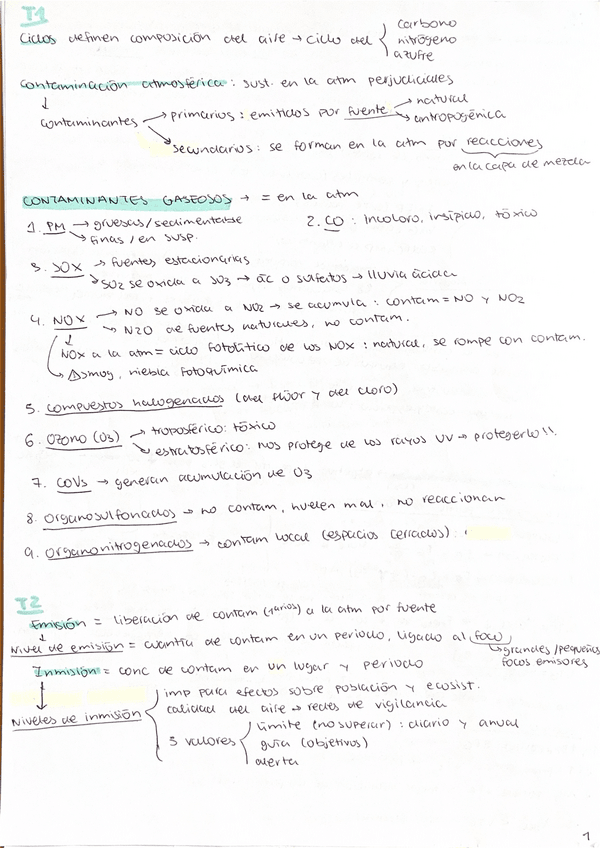 T1
Ciclos definen composición del aire → ciclo del { carbono
nitrógeno
azufre
Contaminación atmosférica: sust. en la atm perjudiciales
↓
contaminantes → primarios: emitidos por fuente → natural
→ antropogénica
→ secundarios: se forman en la atm por reacciones
en la capa de mezcla
CONTAMINANTES GASEOSOS → = en la atm
1. PM → gruesas/sedimentable
→ finas / en susp.
2. CO: incoloro, insípido, tóxico
3. SOX → fuentes estacionarias
→ SO2 se oxida a SO3 → ác o sulfatos → lluvia ácida
4. NOX → NO se oxida a NO2 → se acumula: contam = NO y NO2
→ N2O de fuentes naturales, no contam.
↓
NOx a la atm = ciclo fotolítico de los NOx: natural, se rompe con contam.
→ Δsmog, niebla fotoquímica
5. compuestos halogenados (del flúor y del cloro)
6. Ozono (O3) → troposférico: tóxico
→ estratosférico: nos protege de los rayos UV → protegerlo!!
7. COVs → generan acumulación de O3
8. Organosulfonados → no contam, huelen mal, no reaccionan
9. Organonitrogenados → contam local (espacios cerrados).
T2
Emisión = liberación de contam (1arios) a la atm por fuente
↓
Nivel de emisión = cuantía de contam en un periodo, ligado al foco
→ grandes/pequeños
focos emisores
Inmisión = conc de contam en un lugar y periodo
↓
Niveles de inmisión { imp para efectos sobre población y ecosist.
calidad del aire → redes de vigilancia
3 valores { límite (no superar): diario y anual
guía (objetivos)
alerta
1